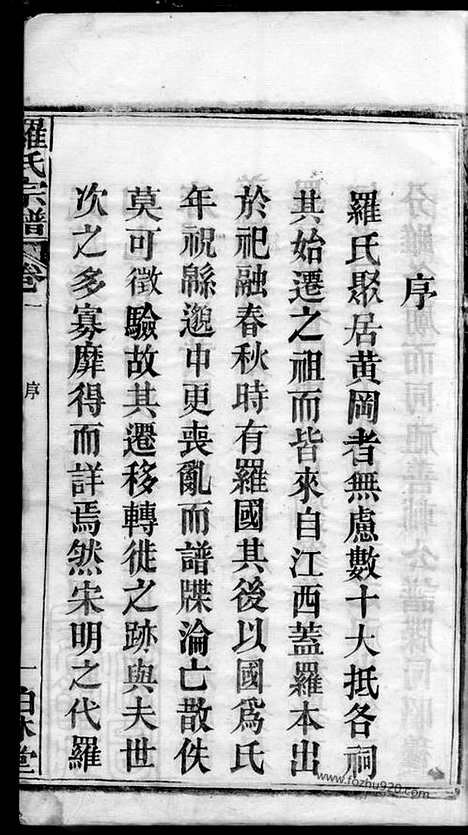 序
羅氏聚居黃岡者無慮數十大抵各祠
其始遷之祖而皆來自江西蓋羅本出
於祀融春秋時有羅國其後以國爲氏
年祝緜邈中更喪亂而譜牒淪亡散佚
莫可徵驗故其遷移轉徙之跡與夫世
次之多寡靡得而詳焉然宋明之代羅
羅氏宗譜 卷一 序 一
www.fozhu920.com